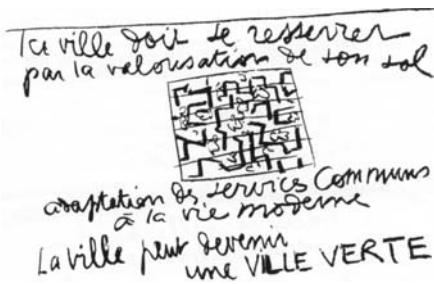 La ville doit se resserrer
par la valorisation de son sol
adaptation des services Communs
à la vie moderne
La ville peut devenir
une VILLE VERTE